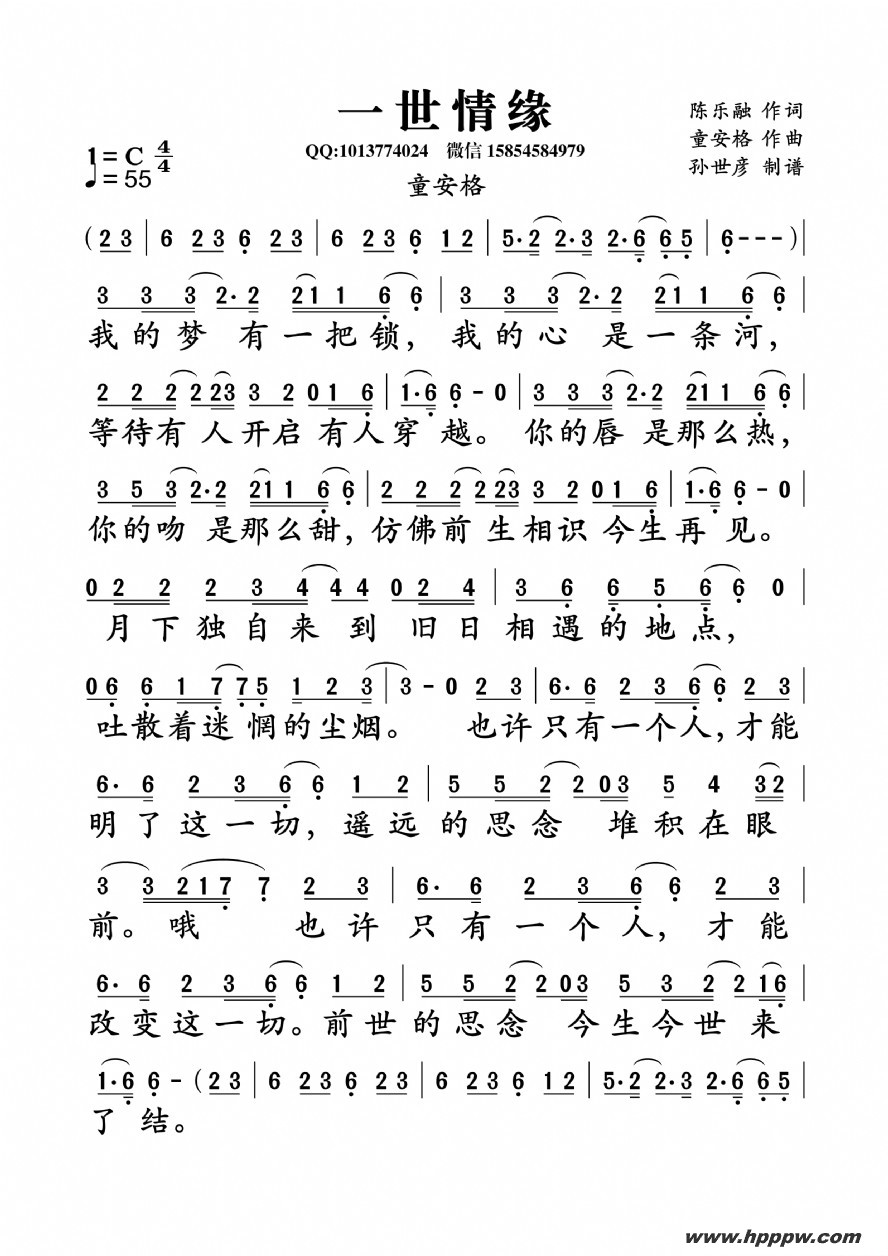 一世情缘
陈乐融 作词
1=C 4/4
QQ:1013774024 微信 15854584979
童安格 作曲
♩=55
童安格
孙世彦 制谱
(2 3 | 6 2 3 6 2 3 | 6 2 3 6 1 2 | 5·2 2·3 2·6 6 5 | 6 - - - ) |
3 3 3 2·2 2 1 1 6 6 | 3 3 3 2·2 2 1 1 6 6 |
我的梦 有一把锁，我的心 是一条河，
2 2 2 2 2 3 3 2 0 1 6 | 1·6 6 - 0 | 3 3 3 2·2 2 1 1 6 6 |
等待有 人开启 有人穿 越。 你的唇 是那么热，
3 5 3 2·2 2 1 1 6 6 | 2 2 2 2 2 3 3 2 0 1 6 | 1·6 6 - 0 |
你的吻 是那么甜，仿佛前 生相识 今生再 见。
0 2 2 2 3 4 4 4 0 2 4 | 3 6 6 5 6 6 0 |
月下独自来 到 旧日相遇的地点，
0 6 6 1 7 7 5 1 2 3 | 3 - 0 2 3 | 6· 6 2 3 6 6 2 3 |
吐散着迷 惘的尘烟。 也许只有一个人，才能
6· 6 2 3 6 6 1 2 | 5 5 2 2 0 3 5 4 3 2 |
明了这一切，遥远的思念 堆积在眼
3 3 2 1 7 7 2 3 | 6· 6 2 3 6 6 2 3 |
前。哦 也许只有一个人，才能
6· 6 2 3 6 6 1 2 | 5 5 2 2 0 3 5 3 2 2 1 6 |
改变这一切。前世的思念 今生今世来
1·6 6 - (2 3 | 6 2 3 6 2 3 | 6 2 3 6 1 2 | 5·2 2·3 2·6 6 5 |
了 结。
www.hpppw.com